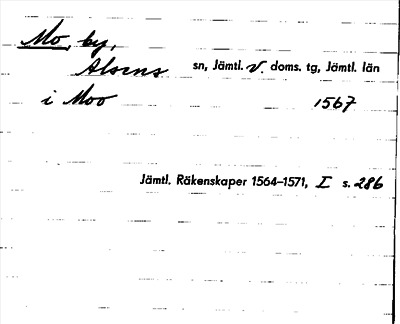 Mo, by,
Alsens sn, Jämtl. v. doms. tg, Jämtl. län
i Moo 1567
Jämtl. Räkenskaper 1564–1571, I s. 286